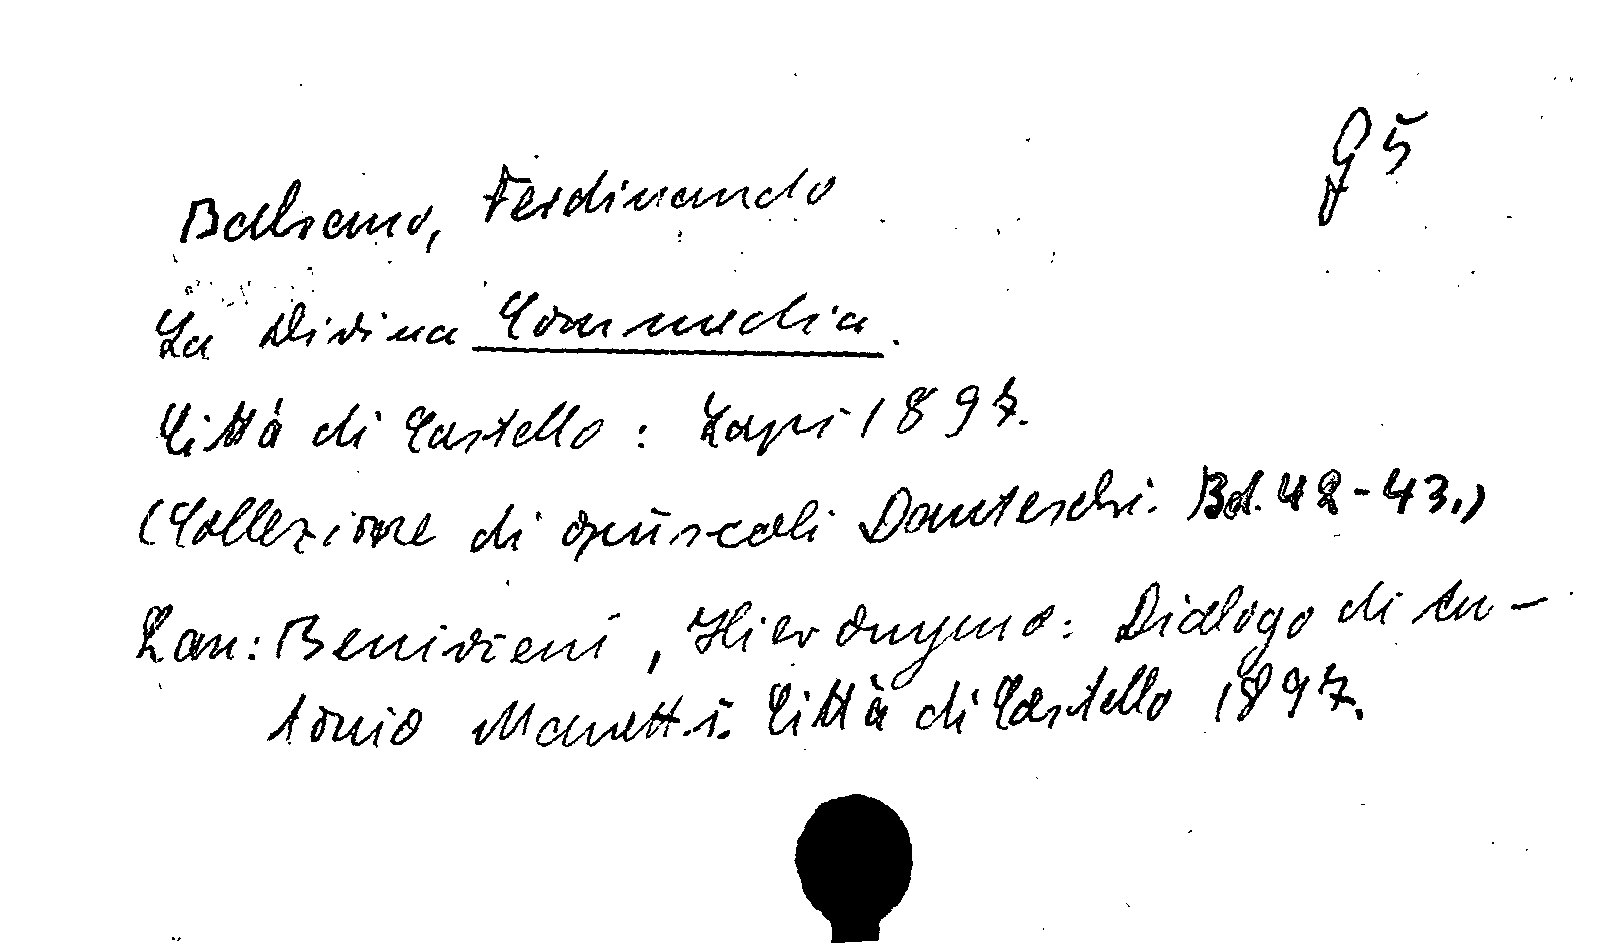 g 5
Balsamo, Ferdinando
La Divina Commedia.
Città di Castello: Lapi 1897.
(Collezione di opuscoli Danteschi. Bd. 42-43.)
Lan: Benivieni, Hieronymo: Dialogo di An-
tonio Manetti. Città di Castello 1897.